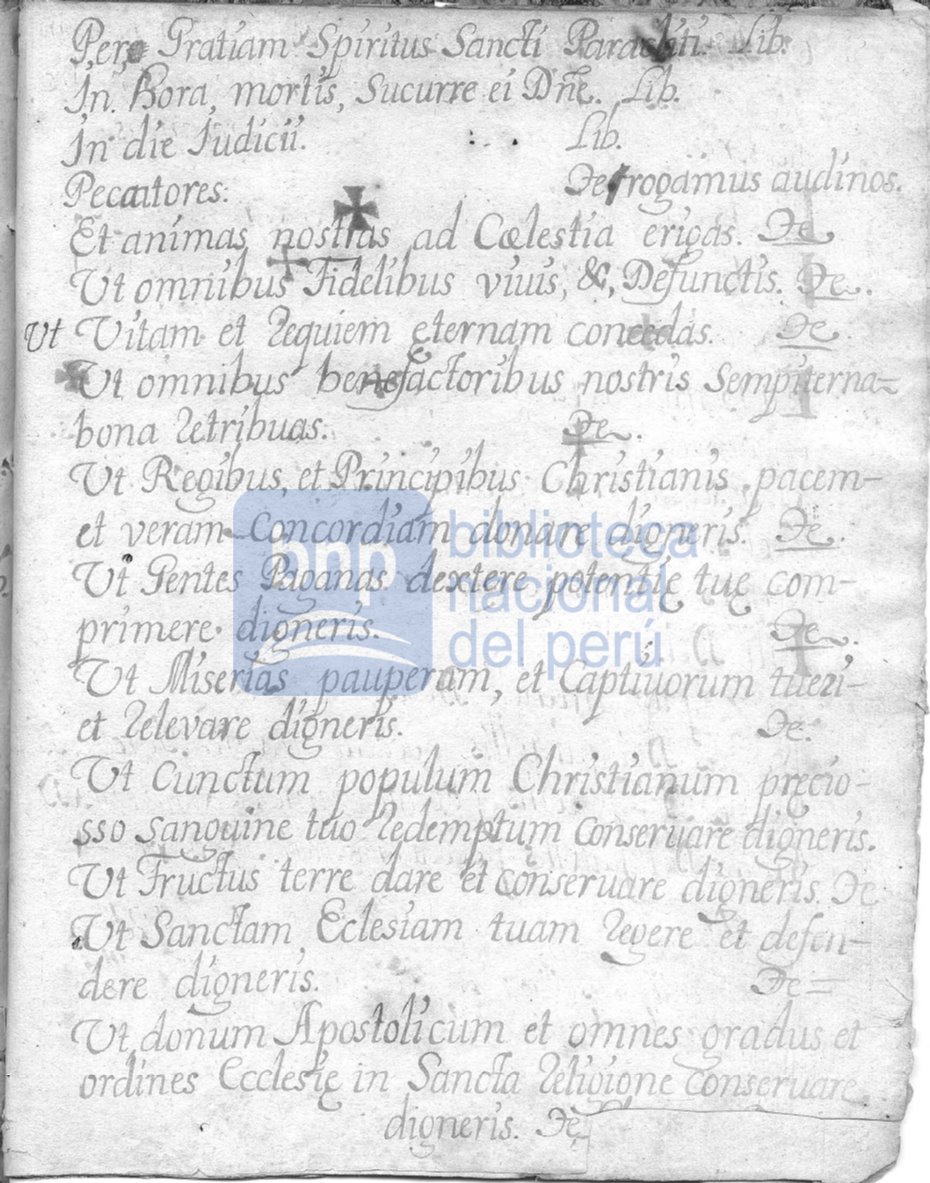 Per Gratiam Spiritus Sancti Paracliti. Lib.
In. Hora, mortis, Sucurre ei Dñe. Lib.
In die Iudicii. Lib.
Pecatores. Te rogamus audinos.
Et animas nostras ad Cœlestia erigas. Te
Ut omnibus Fidelibus viuis, &, Defunctis. Te.
Ut Vitam et Requiem eternam concedas. Te
Ut omnibus benefactoribus nostris Sempiterna=
bona Retribuas. Te.
Ut Regibus, et Principibus Christianis pacem-
et veram Concordiam donare digneris. Te.
Ut Gentes Paganas dextere potentię tuę com-
primere digneris. Te.
Ut Miserias pauperam, et Captiuorum tueri-
et Relevare digneris. Te.
Ut Cunctum populum Christianum pręcio-
sso sanguine tuo Redemptum Conseruare digneris.
Ut Fructus terre dare et conseruare digneris. Te
Ut Sanctam Eclesiam tuam Regere et defen-
dere digneris. Te=
Ut donum Apostolicum et omnes gradus et
ordines Ecclesię in Sancta Religione Conseruare
digneris. Te
bnp biblioteca
nacional
del perú